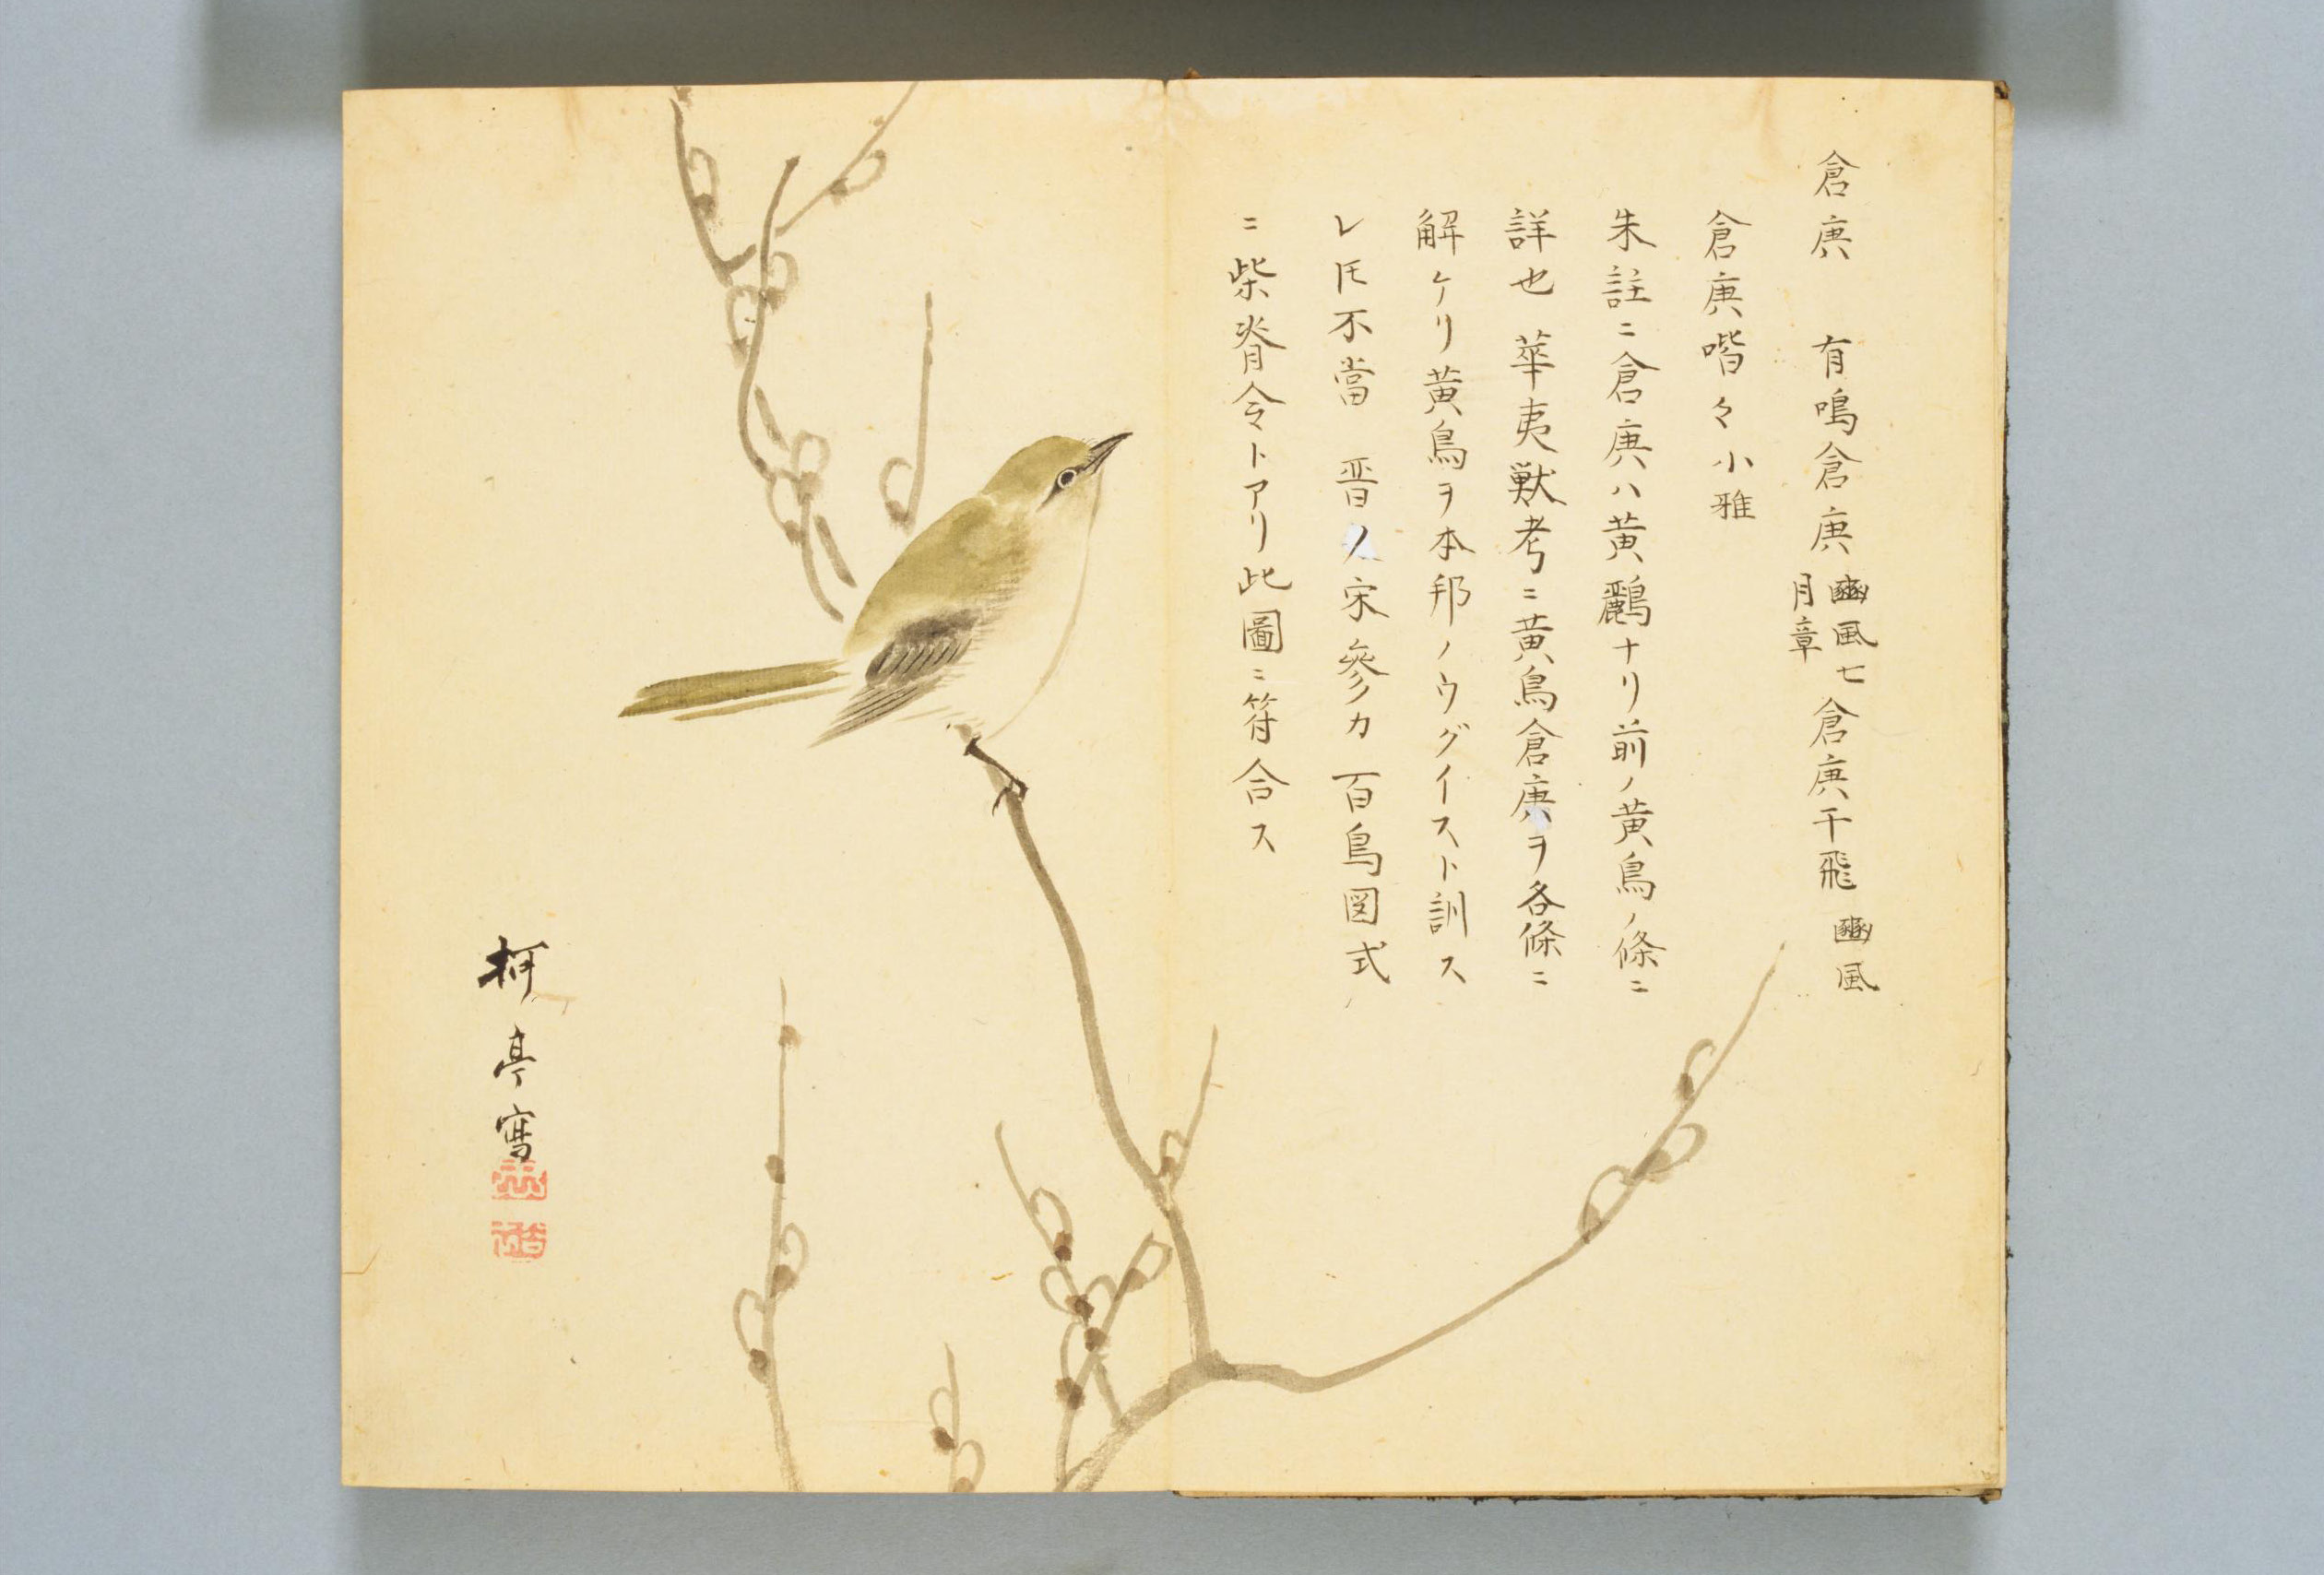 倉庚　有鳴倉庚 豳風七月章 倉庚于飛 豳風
倉庚喈々小雅
朱註ニ倉庚ハ黄鸝ナリ前ノ黄鳥ノ條ニ
詳也 華夷獣考ニ黄鳥倉庚ヲ各條ニ
解ケリ黄鳥ヲ本邦ノウグイスト訓ス
レ𪜈不當 晋ノ宋參カ百鳥図式
ニ柴脊令トアリ此圖ニ符合ス
柯亭寫